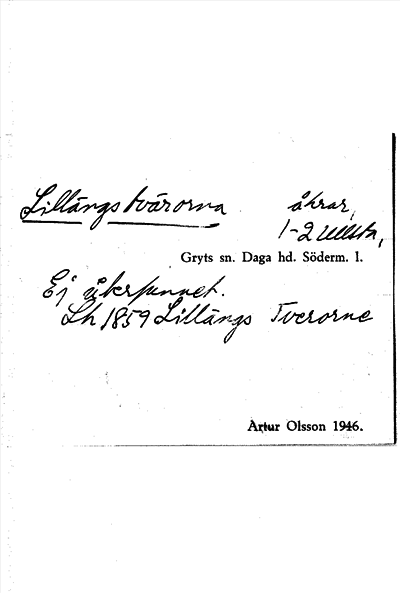 Lillängstvärorna åkrar,
1-2 Ullsta,
Gryts sn. Daga hd. Söderm. l.
Ej återfunnet.
Lh 1859 Lillängs Tverorne
Artur Olsson 1946.